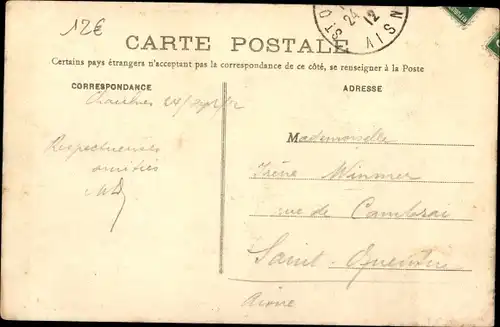 12€
24
12
AISN
CARTE POSTALE
Certains pays étrangers n'acceptant pas la correspondance de ce côté, se renseigner à la Poste
CORRESPONDANCE
ADRESSE
Respectueuses
amitiés
Mademoiselle
Irène Wimmer
rue de Cambrai
Saint-Quentin
Aisne